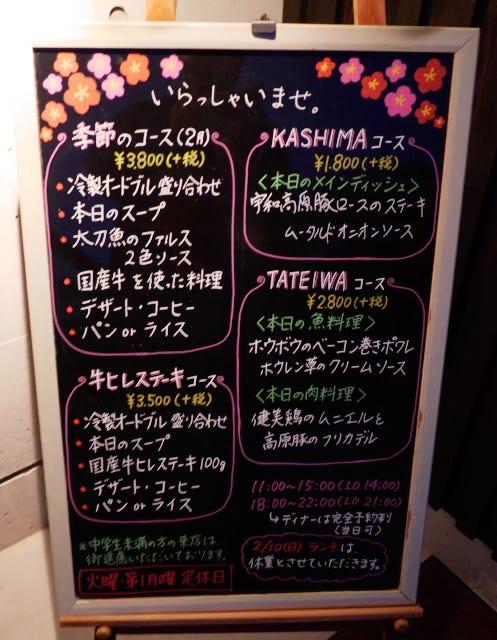 いらっしゃいませ。
季節のコース(2月)
¥3,800(+税)
・冷製オードブル盛り合わせ
・本日のスープ
・太刀魚のファルス
2色ソース
・国産牛を使った料理
・デザート・コーヒー
・パンorライス
牛ヒレステーキコース
¥3,500(+税)
・冷製オードブル盛り合わせ
・本日のスープ
・国産牛ヒレステーキ100g
・デザート・コーヒー
・パンorライス
※中学生未満の方の来店は
御遠慮いただいております。
火曜・第1月曜 定休日
KASHIMAコース
¥1.800(+税)
<本日のメインディッシュ>
宇和高原豚ロースのステーキ
ムータルドオニオンソース
TATEIWAコース
¥2.800(+税)
<本日の魚料理>
ホウボウのベーコン巻きポワレ
ホウレン草のクリームソース
<本日の肉料理>
健美鶏のムニエルと
高原豚のフリカデル
11:00~15:00(LO 14:00)
18:00~22:00(LO 21:00)
↳ディナーは完全予約制
(当日可)
2/10(日)ランチは、
休業とさせていただきます。